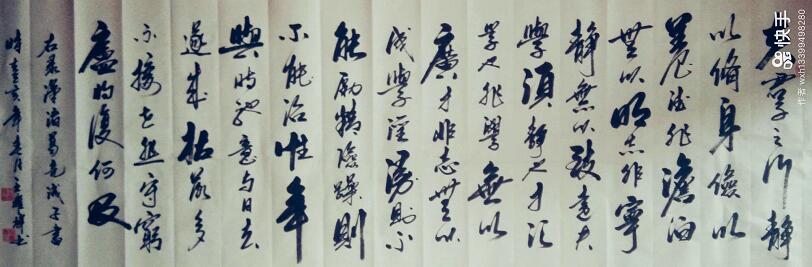 夫君子之行静
以脩身儉以
養德非澹泊
無以明志非寧
静無以致遠夫
學須静也才须
學也非學無以
廣才非志無以
成學淫漫則不
能励精險躁則
不能治性年
與時馳意与日去
遂成枯落多
不接世悲守窮
廬将復何及
右录漢诸葛亮诫子書
時亥年月書
快手
作者 wxh13399498280